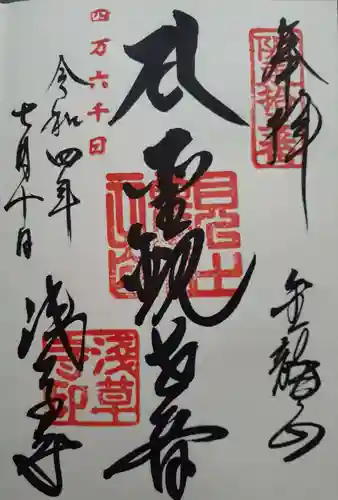 奉拝
金龍山
聖観世音
四万六千日
令和四年
七月十日
浅草寺
淺草寺印